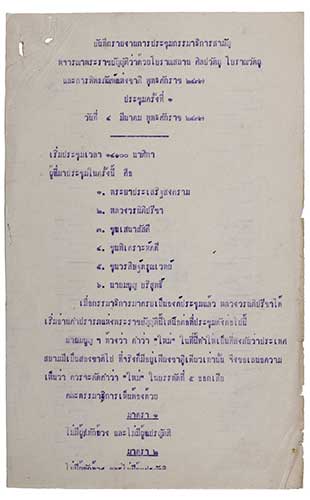 บันทึกรายงานการประชุมกรรมาธิการสามัญ
พิจารณาพระราชบัญญัติว่าด้วยโบราณสถาน ศิลปวัตถุ โบราณวัตถุ
และการพิพิธภัณฑ์แห่งชาติ พุทธศักราช ๒๔๗๗
ประชุมครั้งที่ ๑
วันที่ ๕ มีนาคม พุทธศักราช ๒๔๗๗
เริ่มประชุมเวลา ๑๔.๐๐ นาฬิกา
ผู้ที่มาประชุมในครั้งนี้ คือ
๑. พระยาประเสริฐสงคราม
๒. หลวงวรนิติปรีชา
๓. ขุนเสนาสัสดี
๔. ขุนพิเคราะห์คดี
๕. ขุนวรสิษฐ์ดรุณเวทย์
๖. นายมงคล บริสุทธิ์
เมื่อกรรมาธิการมาครบเป็นองค์ประชุมแล้ว หลวงวรนิติปรีชาได้
เริ่มอ่านคำปรารภแห่งพระราชบัญญัตินี้เสนอต่อที่ประชุมดังต่อไปนี้
ท้วงว่า คำว่า "ไทย" ในที่นี้ทำให้เป็นที่สงสัยว่าประเทศ
สยามมีเป็นสองชาติไป ที่จริงก็มีอยู่เพียงชาติเดียวเท่านั้น จึงขอเสนอความ
เห็นว่า ควรจะตัดคำว่า "ไทย" ในบรรทัดที่ ๕ ออกเสีย
คณะกรรมาธิการเห็นพ้องด้วย
มาตรา ๑
ไม่มีผู้คัดค้าน และไม่มีผู้แปรญัตติ
มาตรา ๒